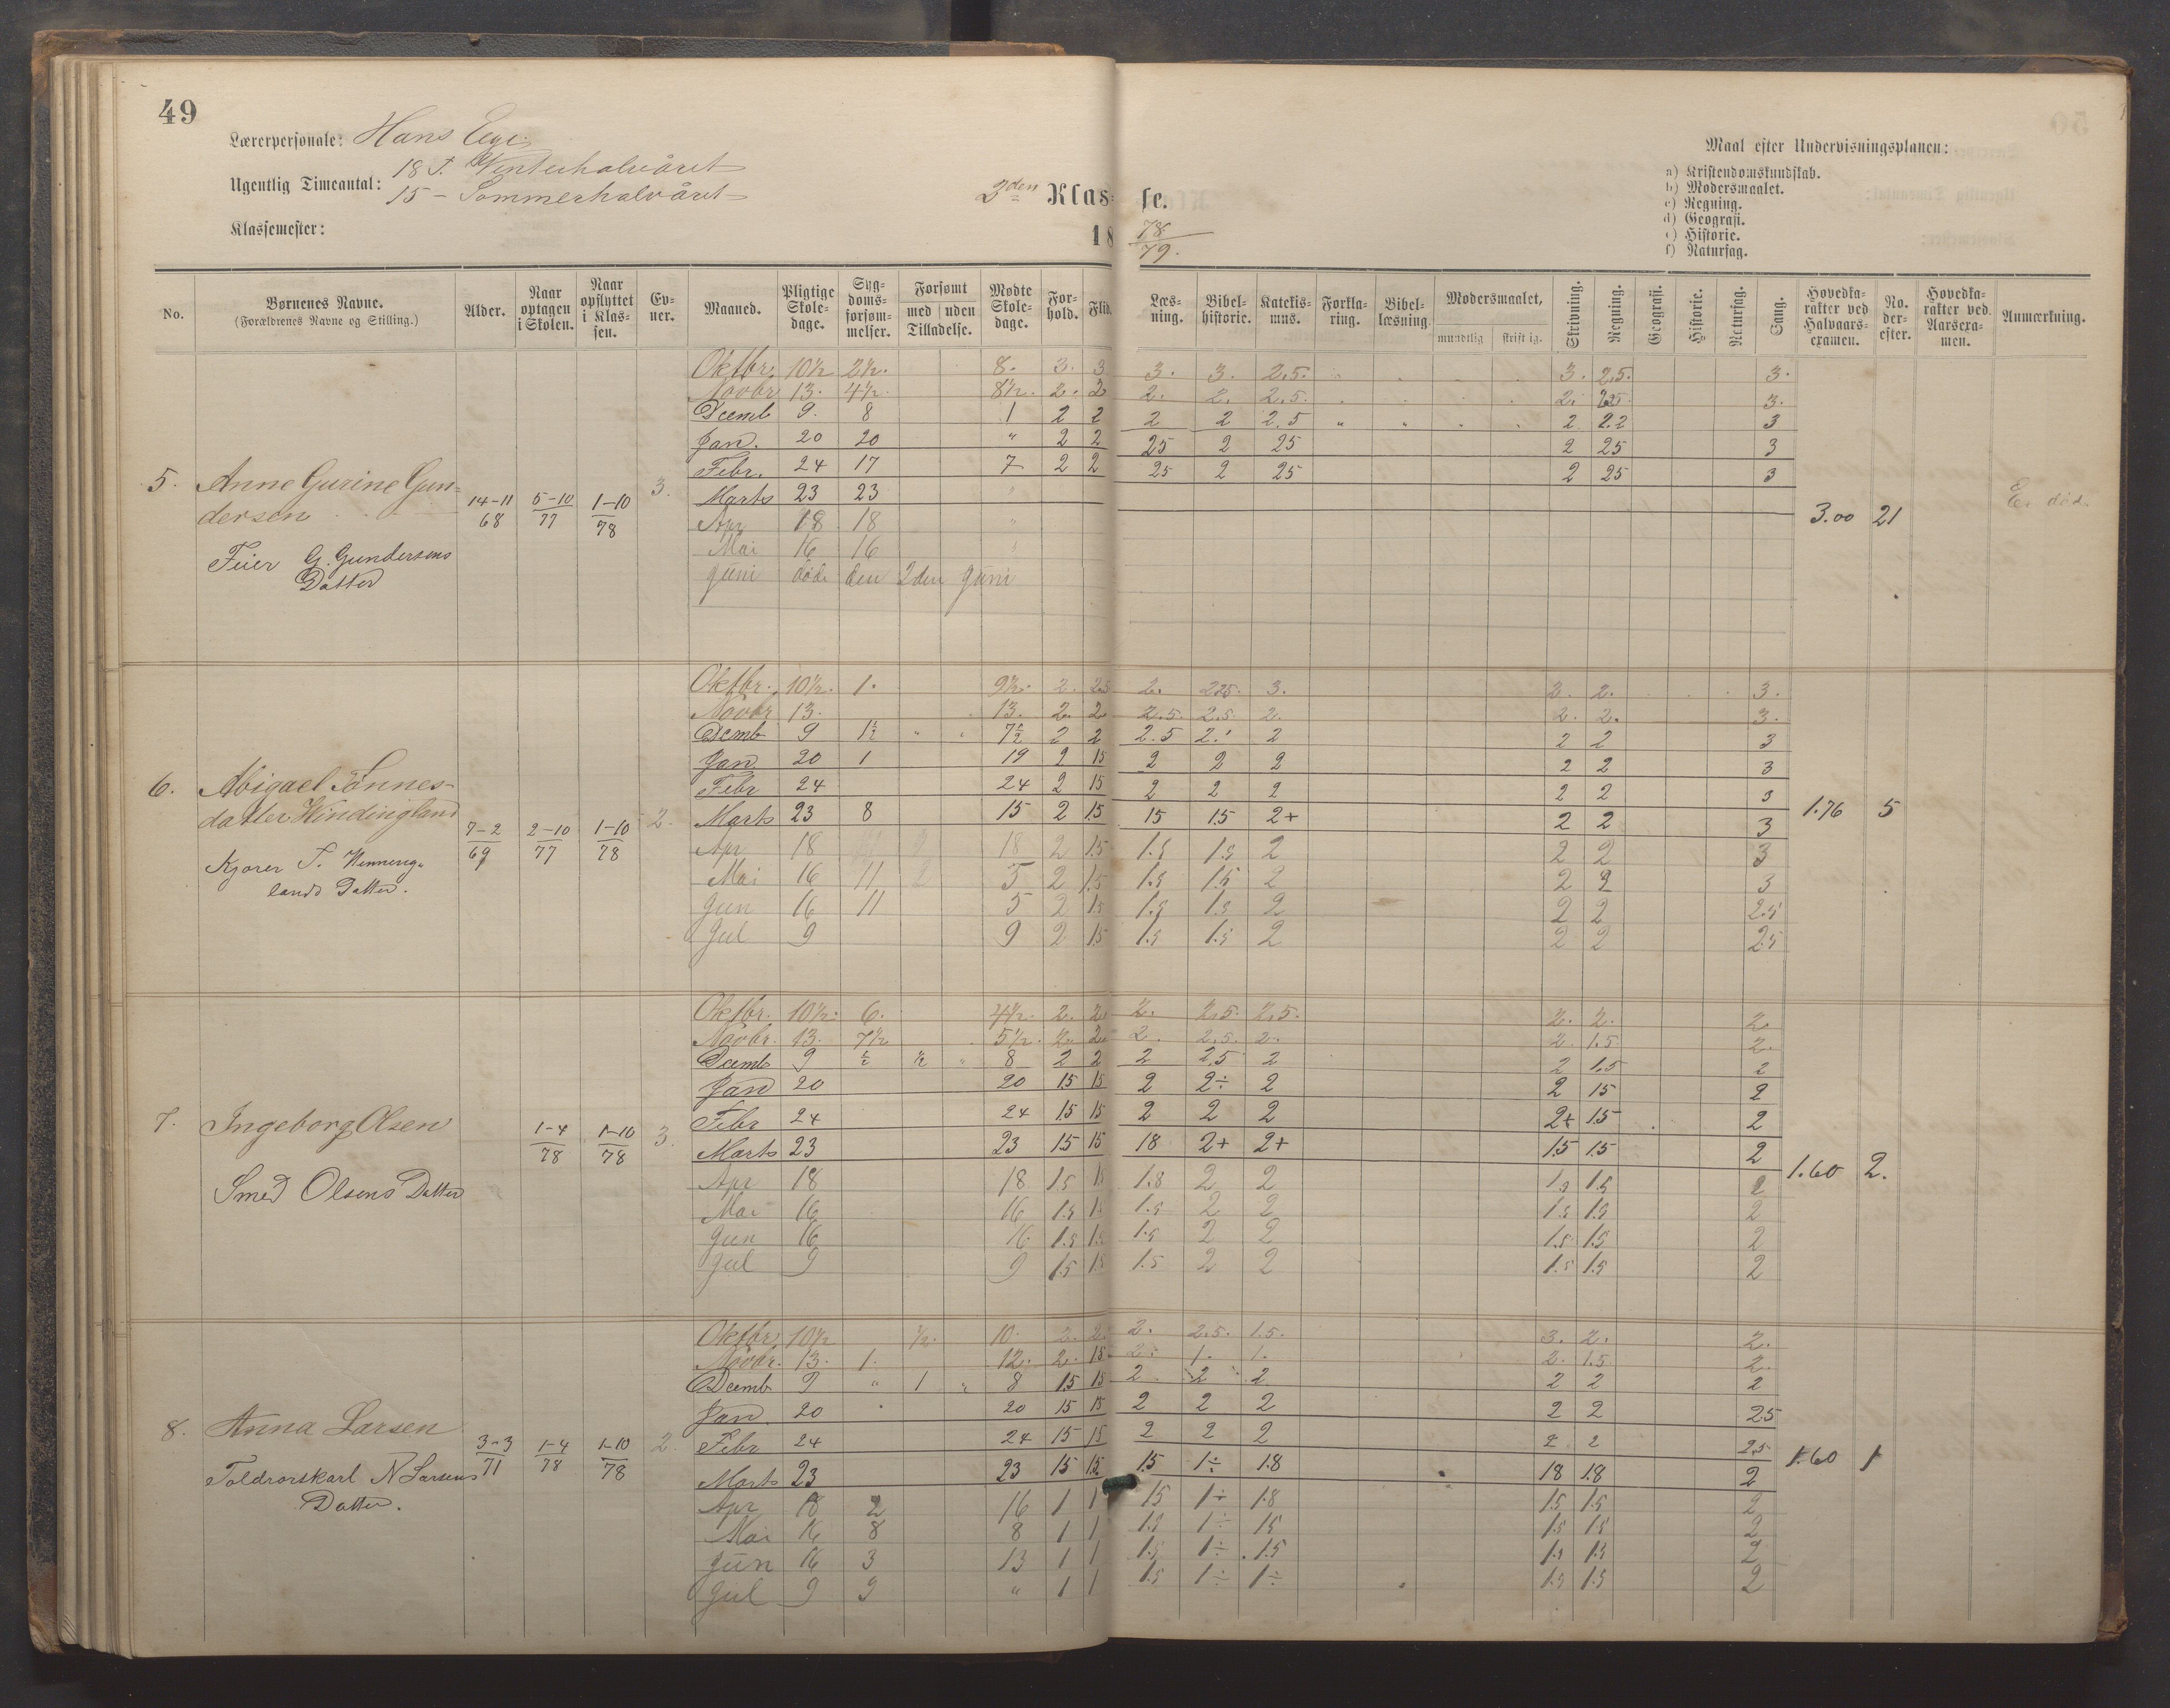 49
Lærerpersonale: Hans Eege.
Ugentlig Timeantal: 18 T. Vinterhalvåret
15 – Sommerhalvåret
Klassemester:
2den Klas=
18
se.
78
79.
Maal efter Undervisningsplanen:
a) Kristendomskundskab.
b) Modersmaalet.
c) Regning.
d) Geografi.
e) Historie.
f) Naturfag.
No. Børnenes Navne. (Forældrenes Navne og Stilling.) Alder. Naar optagen i Skolen. Naar opflyttet i Klassen. Evner. Maaned. Pligtige Skoledage. Sygdomsforsømmelser. Forsømt med uden Tilladelse. Mødte Skoledage. Forhold. Flid.
Læsning. Bibelhistorie. Katekismus. Forklaring. Bibellæsning. Modersmaalet, mundtlig skriftlig. Skrivning. Regning. Geografi. Historie. Naturfag. Sang. Hovedkarakter ved Halvaarsexamen. No. derefter. Hovedkarakter ved Aarsexamen. Anmærkning.
5. Anne Gurine Gundersen
Feier G. Gundersens Datter
14-11 68 5-10 77 1-10 78 3.
Oktbr. 10½ 2½. 8. 3. 3 3. 3. 2.5. 3. 2.5. 3.
Novbr 13. 4½. 8½. 2. 2 2. 2. 2.5. 2. 3.
Decemb 9. 8 1 2 2 2 2 2.5 2 2.2 3
Jan. 20 20 " 2 2 25 2 25 2 25 3
Febr. 24 17 7 2 2 25 2 25 2 25 3
Marts 23 23 "
Apr 18 18 "
Mai 16 16 "
Juni døde den 2den Juni
3.00 21
Er død.
6. Abigael Tönnesdatter
Kjører T.
lands Datter.
7-2 69 2-10 77 1-10 78 2.
Oktbr. 10½. 1. 9½. 2. 2.5 2. 225. 3. 2. 2. 3.
Novbr 13. 13. 2. 2 2.5. 2.5. 2. 2. 2. 3.
Decmb 9 1½ 7½ 2 2 2.5 2. 2 2 2 3
Jan 20 1 19 2 15 2 2 2 2 2 3
Febr 24 24 2 15 2 2 2 2 2 3
Marts 23 8 15 2 15 15 15 2+ 2 2 3
Apr 18 18 2 1.5 1.5 1.5 2 2 2 3
Mai 16 11 2 5 2 1.5 1.5 1.5 2 2 2 3
Jun 16 11 5 2 1.5 1.5 1.5 2 2 2 2.5
Jul 9 9 2 1.5 1.5 1.5 2 2 2 2.5
1.76 5
7. Ingeborg Olsen
Smed Olsens Datter
1-4 78 1-10 78 3.
Oktbr. 10½. 6. 4½. 2. 2. 2. 2.5. 2.5. 2. 2. 2.
Novbr. 13. 7½ 5½. 2. 2. 2. 2.5. 2. 2. 1.5. 2.
Decemb 9 ½ ½ 8 2 2 2 2.5 2 2 1.5 2
Jan 20 20 15 15 2 2÷ 2 2 15 2
Febr 24 24 15 15 2 2 2 2+ 15 2
Marts 23 23 15 15 18 2+ 2+ 15 15 2
Apr 18 18 1.5 1.5 1.8 2 2 1.5 1.5 2
Mai 16 16 1.5 1.5 1.5 2 2 1.5 1.5 2
Jun 16 16 1.5 1.5 1.5 2 2 1.5 1.5 2
Jul 9 9 1.5 1.5 1.5 2 2 1.5 1.5 2
1.60 2.
8. Anna Larsen
Toldrorskarl N Larsens
Datter.
3-3 71 1-4 78 1-10 78 2.
Oktbr. 10½ ½. 10. 2. 2. 2. 2.5. 1.5. 3. 2. 2.
Novbr. 13. 1. 12. 2. 15 2. 1. 1. 2. 1.5. 2.
Decemb 9 " 1 " 8 15 15 2 2 2 2 2 2
Jan. 20 20 15 15 2 2 2 2 2 25
Febr 24 24 15 15 2 2 2 2 2 25
Marts 23 23 15 15 15 1÷ 18 18 18 2
Apr 18 2 16 1 1 15 1÷ 1.8 1.5 1.5 2
Mai 16 8 8 1 1 1.5 1÷ 15 1.5 1.5 2
Jun 16 3 13 1 1 1.5 1÷ 1.5 1.5 1.5 2
Jul 9 9 " 1 1 1.5 1÷ 1÷ 1.5 1.5 2
1.60 1